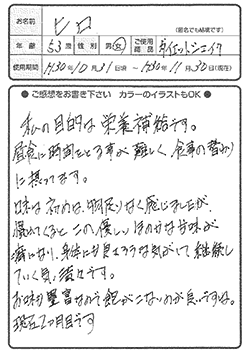 お名前 ヒロ (匿名でも結構です)
年齢 53歳 性別 男・女 ご使用商品 ダイエットシェイク
使用期間 H30年10月31日頃 ～ H30年11月30日(現在)
● ご感想をお書き下さい カラーのイラストもOK ●
私の目的は栄養補給です。
昼食に時間をとる事が難しく、食事の替わり
に摂ってます。
味は初めは、物足りなく感じましたが、
慣れてくると この、優しい ほのかな甘味が
癖になり、身体にも良さそうな気がして、継続し
ていく気満々です。
お味も豊富なので飽がこないのが良いですね。
現在2ヶ月目です